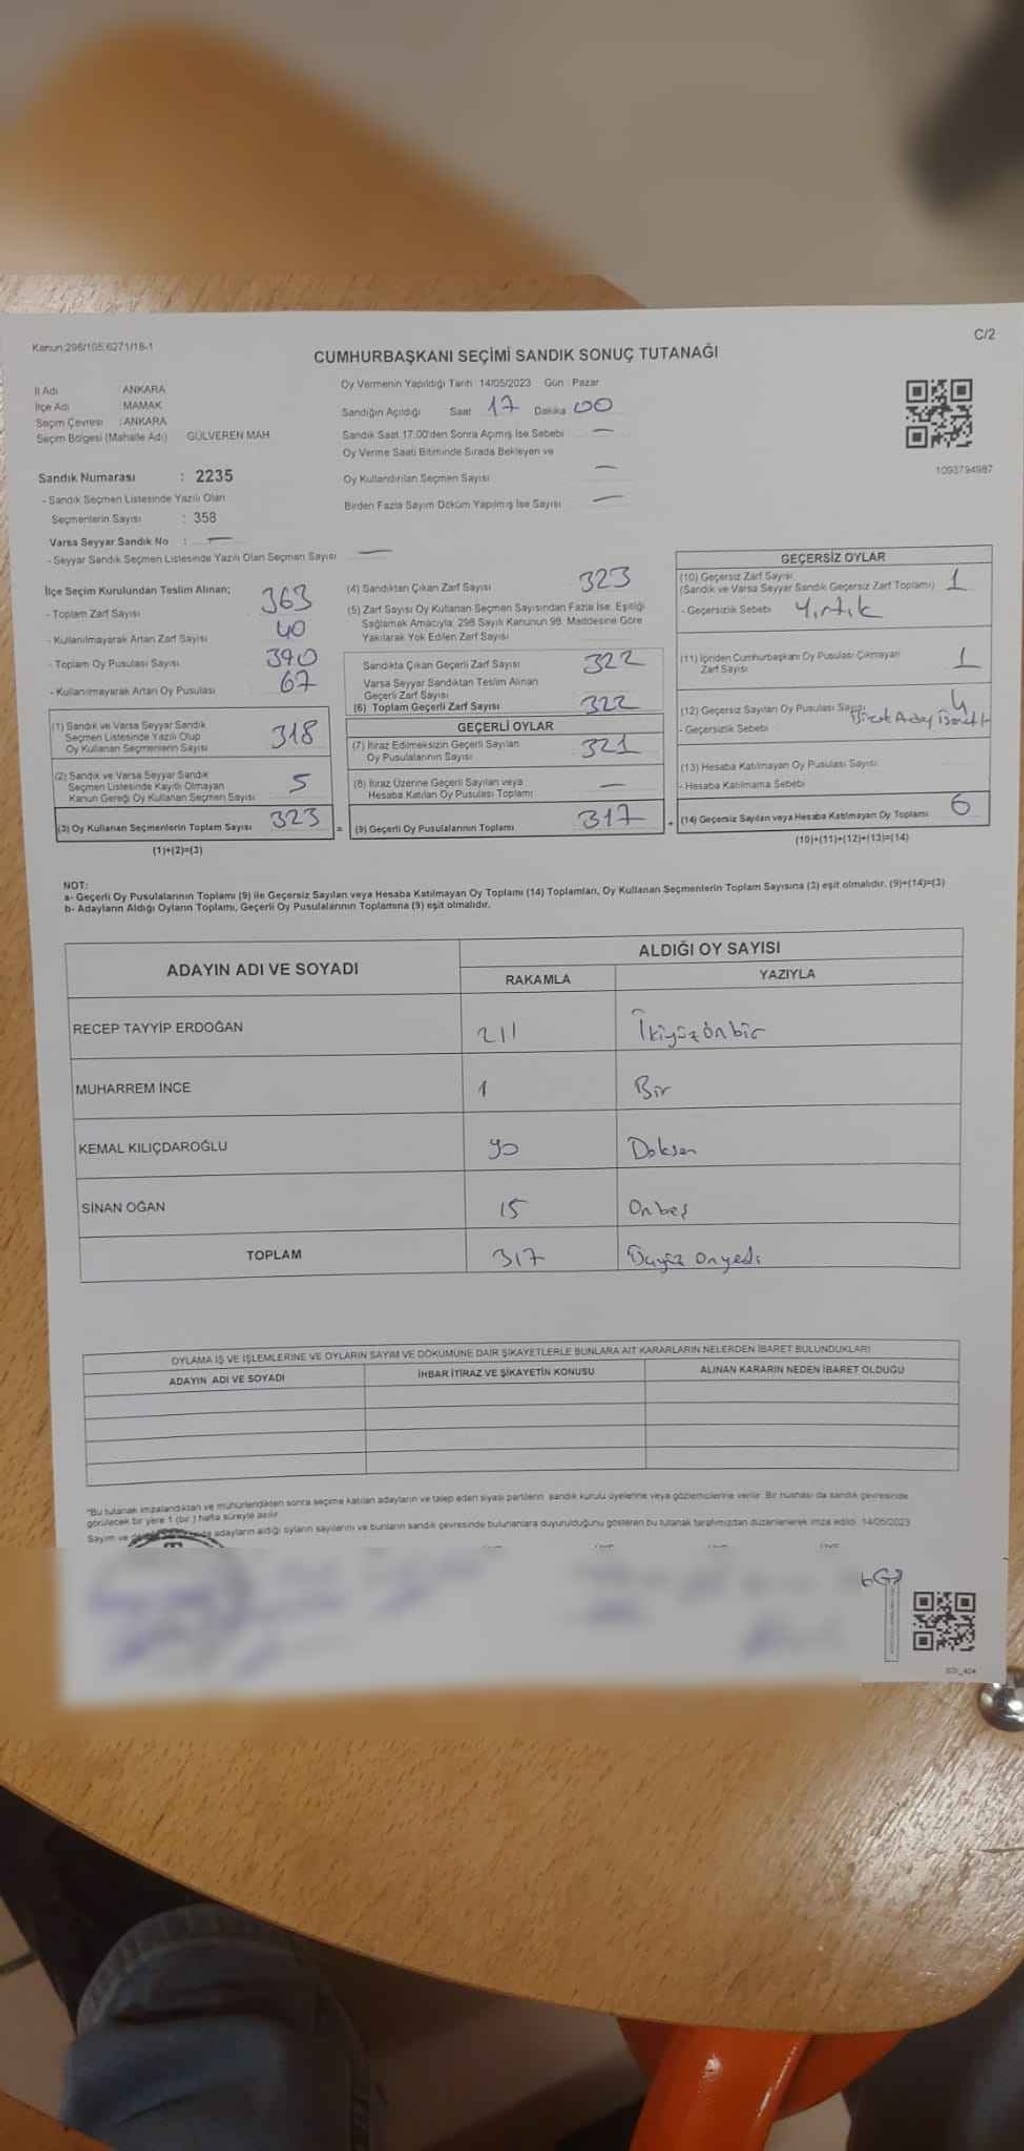 Kanun:298/105,6271/18-1
C/2
CUMHURBAŞKANI SEÇİMİ SANDIK SONUÇ TUTANAĞI
İl Adı : ANKARA
İlçe Adı : MAMAK
Seçim Çevresi : ANKARA
Seçim Bölgesi (Mahalle Adı) GÜLVEREN MAH
Sandık Numarası : 2235
- Sandık Seçmen Listesinde Yazılı Olan
Seçmenlerin Sayısı : 358
Varsa Seyyar Sandık No : —
- Seyyar Sandık Seçmen Listesinde Yazılı Olan Seçmen Sayısı —
Oy Vermenin Yapıldığı Tarih 14/05/2023 Gün : Pazar
Sandığın Açıldığı Saat 17 Dakika 00
Sandık Saat 17:00'den Sonra Açılmış İse Sebebi —
Oy Verme Saati Bitiminde Sırada Bekleyen ve
Oy Kullandırılan Seçmen Sayısı —
Birden Fazla Sayım Döküm Yapılmış İse Sayısı —
1093794987
İlçe Seçim Kurulundan Teslim Alınan;
- Toplam Zarf Sayısı 363
- Kullanılmayarak Artan Zarf Sayısı 40
- Toplam Oy Pusulası Sayısı 390
- Kullanılmayarak Artan Oy Pusulası 67
(1) Sandık ve Varsa Seyyar Sandık
Seçmen Listesinde Yazılı Olup
Oy Kullanan Seçmenlerin Sayısı 318
(2) Sandık ve Varsa Seyyar Sandık
Seçmen Listesinde Kayıtlı Olmayan
Kanun Gereği Oy Kullanan Seçmen Sayısı 5
(3) Oy Kullanan Seçmenlerin Toplam Sayısı 323 =
(1)+(2)=(3)
(4) Sandıktan Çıkan Zarf Sayısı 323
(5) Zarf Sayısı Oy Kullanan Seçmen Sayısından Fazla İse, Eşitliği
Sağlamak Amacıyla, 298 Sayılı Kanunun 98. Maddesine Göre
Yakılarak Yok Edilen Zarf Sayısı
Sandıkta Çıkan Geçerli Zarf Sayısı 322
Varsa Seyyar Sandıktan Teslim Alınan
Geçerli Zarf Sayısı
(6) Toplam Geçerli Zarf Sayısı 322
GEÇERLİ OYLAR
(7) İtiraz Edilmeksizin Geçerli Sayılan
Oy Pusulalarının Sayısı 321
(8) İtiraz Üzerine Geçerli Sayılan veya
Hesaba Katılan Oy Pusulası Toplamı —
(9) Geçerli Oy Pusulalarının Toplamı 317 +
GEÇERSİZ OYLAR
(10) Geçersiz Zarf Sayısı
(Sandık ve Varsa Seyyar Sandık Geçersiz Zarf Toplamı) 1
- Geçersizlik Sebebi Yırtık
(11) İçinden Cumhurbaşkanı Oy Pusulası Çıkmayan
Zarf Sayısı 1
(12) Geçersiz Sayılan Oy Pusulası Sayısı 4
- Geçersizlik Sebebi
(13) Hesaba Katılmayan Oy Pusulası Sayısı
- Hesaba Katılmama Sebebi
(14) Geçersiz Sayılan veya Hesaba Katılmayan Oy Toplamı 6
(10)+(11)+(12)+(13)=(14)
NOT:
a- Geçerli Oy Pusulalarının Toplamı (9) ile Geçersiz Sayılan veya Hesaba Katılmayan Oy Toplamı (14) Toplamları, Oy Kullanan Seçmenlerin Toplam Sayısına (3) eşit olmalıdır. (9)+(14)=(3)
b- Adayların Aldığı Oyların Toplamı, Geçerli Oy Pusulalarının Toplamına (9) eşit olmalıdır.
ADAYIN ADI VE SOYADI
ALDIĞI OY SAYISI
RAKAMLA YAZIYLA
RECEP TAYYİP ERDOĞAN 211 İkiyüzonbir
MUHARREM İNCE 1 Bir
KEMAL KILIÇDAROĞLU 90 Doksan
SİNAN OĞAN 15 Onbeş
TOPLAM 317 Üçyüz Onyedi
OYLAMA İŞ VE İŞLEMLERİNE VE OYLARIN SAYIM VE DÖKÜMÜNE DAİR ŞİKAYETLERLE BUNLARA AİT KARARLARIN NELERDEN İBARET BULUNDUKLARI
ADAYIN ADI VE SOYADI İHBAR İTİRAZ VE ŞİKAYETİN KONUSU ALINAN KARARIN NEDEN İBARET OLDUĞU
"Bu tutanak imzalandıktan ve mühürlendikten sonra seçime katılan adayların ve talep eden siyasi partilerin sandık kurulu üyelerine veya gözlemcilerine verilir. Bir nüshası da sandık çevresinde
görülecek bir yere 1 (bir) hafta süreyle asılır.
Sayım ve adayların aldığı oyların sayılarını ve bunların sandık çevresinde bulunanlara duyurulduğunu gösteren bu tutanak tarafımızdan düzenlenerek imza edildi. 14/05/2023